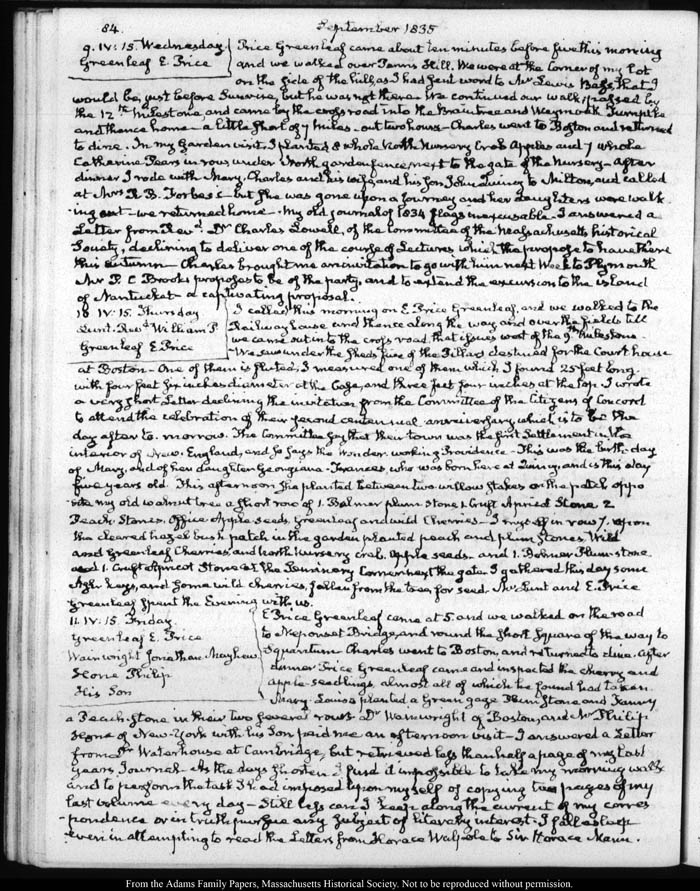 84. September 1835
9. IV: 15. Wednesday Price Greenleaf came about ten minutes before five this morning
Greenleaf E. Price and we walked over Penns Hill. We were at the corner of my lot
on the side of the hill, as I had sent word to Mr Lewis Bass, that I
would be, just before Sunrise, but he was not there. We continued our walk, passed by
the 12th milestone, and came by the cross road into the Braintree and Weymouth Turnpike
and thence home— a little short of 7 miles— out two hours— Charles went to Boston and returned
to dine. In my Garden visit, I planted 8 whole North Nursery Crab Apples and 7 whole
Catharine Pears in rows under North garden fence, next to the gate of the Nursery— After
dinner I rode with Mary, Charles and his wife, and his son John Quincy to Milton, and called
at Mrs R. B. Forbes's— but she was gone upon a Journey and her daughters were walk-
-ing out— we returned home— My old journal of 1834 flags inexcusable. I answered a
Letter from Revd Dr Charles Lowell, of the Committee of the Massachusetts historical
Society, declining to deliver one of the course of Lectures which they propose to have there
this autumn— Charles brought me an invitation to go with him next Week to Plymouth
Mr P. C Brooks proposes to be of the party, and to extend the excursion to the island
of Nantucket— a captivating proposal.
10 IV: 15. Thursday I called this morning on E. Price Greenleaf, and we walked to the
Lunt. Revd William P. Railway house and thence along the way and over the fields till
Greenleaf E. Price we came out into the cross road, that issues west of the 9th milestone.
We saw under the sheds five of the Pillars destined for the Court house
at Boston— One of them is fluted, I measured one of them which I found 25 feet long
with four feet six inches diameter at the base, and three feet four inches at the top. I wrote
a very short Letter declining the invitation from the Committee of the Citizens of Concord
to attend the celebration of their second centennial anniversary which is to be the
day after to-morrow. The Committee say that their town was the first Settlement in the
interior of New-England, and so says the Wonder-working Providence— This was the birth-day
of Mary, and of her daughter Georgiana-Frances, who was born here at Quincy, and is this day
five years old. This afternoon she planted between two willow stakes on the patch oppo
site my old walnut tree a short row of 1. Bolmer plum stone 1 Cruft Apricot Stone 2
Peach Stones, Office Apple seeds, Greenleaf and wild Cherries— I myself in row 7. upon
the cleared hazel bush patch in the garden planted peach and plum Stones, Wild
and Greenleaf Cherries, and North Nursery crab, apple seeds— and 1. Bolmer Plum-stone
and 1. Cruft Apricot Stone at the Nursery Corner next the gate. I gathered this day some
Ash keys, and some wild cherries, fallen from the tree, for seed. Mr Lunt and E. Price
Greenleaf spent the Evening with us.
11. IV: 15. Friday. E Price Greenleaf came at 5. and we walked on the road
Greenleaf E. Price to Neponset Bridge, and round the short Square of the way to
Wainwright Jonathan Mayhew Squantum— Charles went to Boston, and returned to dine. After
Hone Philip dinner Price Greenleaf came and inspected the cherry and
His Son apple seedlings, almost all of which he found had taken
Mary-Louisa planted a Green gage Plum Stone, and Fanny
a Peach-Stone in their two several rows— Dr Wainwright of Boston, and Mr Philip
Hone of New-York with his Son paid me an afternoon visit— I answered a Letter
from Dr Waterhouse at Cambridge, but retrieved less than half a page of my last
years Journal— As the days shorten I find it impossible to take my morning walk
and to perform the task I had imposed upon myself of copying two pages of my
last volume every day— Still less can I keep along the current of my corres
-pondence or in truth pursue any subject of literary interest. I fall asleep
even in attempting to read the Letters from Horace Walpole to Sir Horace Mann.
From the Adams Family Papers, Massachusetts Historical Society. Not to be reproduced without permission.